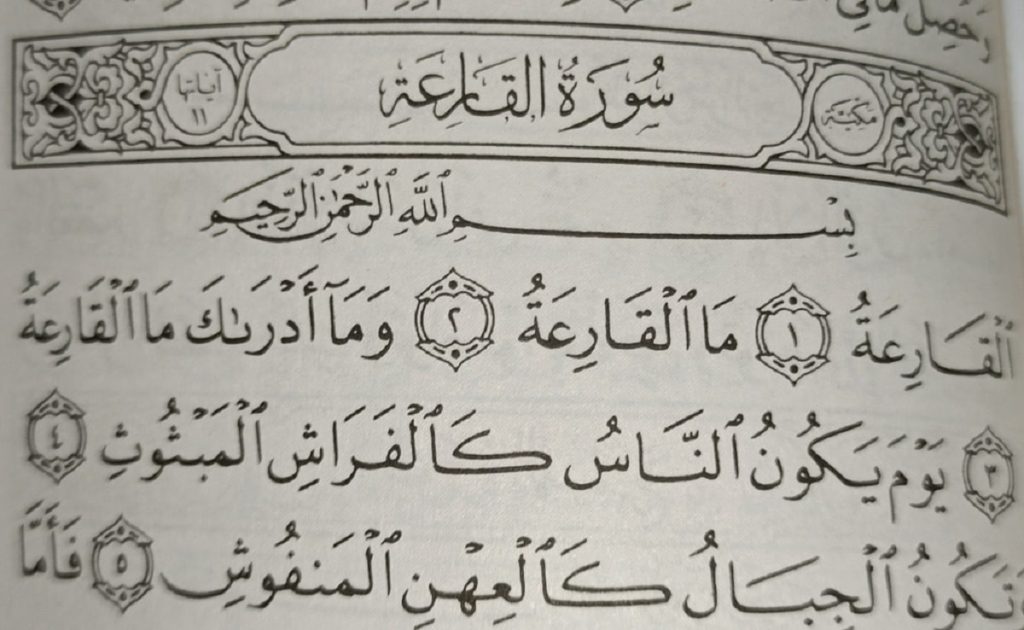 وَحُصِّلَ مَا فِي
مَكِّيَّة
سُورَةُ القَارِعَةِ
آياتها ١١
بِسْمِ ٱللَّهِ ٱلرَّحْمَٰنِ ٱلرَّحِيمِ
ٱلْقَارِعَةُ ١ مَا ٱلْقَارِعَةُ ٢ وَمَآ أَدْرَىٰكَ مَا ٱلْقَارِعَةُ
٣ يَوْمَ يَكُونُ ٱلنَّاسُ كَٱلْفَرَاشِ ٱلْمَبْثُوثِ ٤
وَتَكُونُ ٱلْجِبَالُ كَٱلْعِهْنِ ٱلْمَنفُوشِ ٥ فَأَمَّا